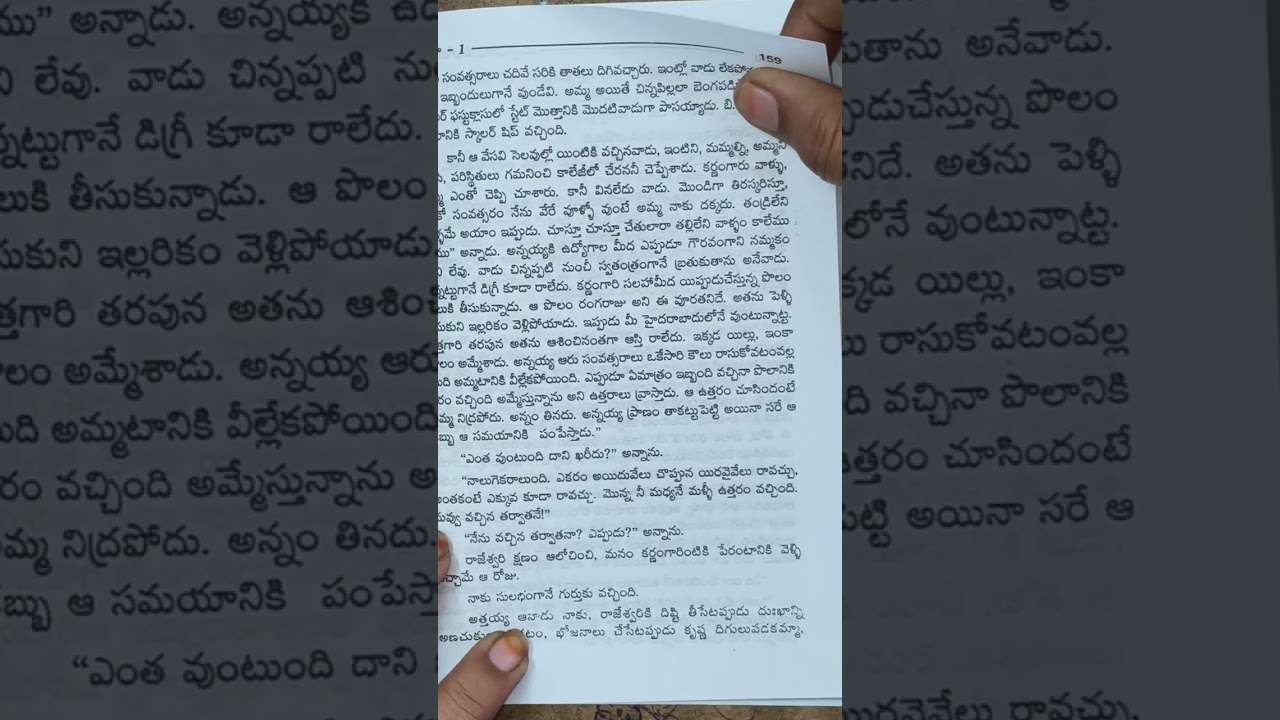 - 1 159
సంవత్సరాలు చదివే సరికి తాతలు దిగివచ్చారు. ఇంట్లో వాడు
ఇబ్బందులుగానే వుండేవి. అమ్మ అయితే చిన్నపిల్లలా
ఫస్టుక్లాసులో స్టేట్ మొత్తానికి మొదటివాడుగా పాసయ్యాడు. బి.
స్కాలర్ షిప్ వచ్చింది.
కానీ ఆ వేసవి సెలవుల్లో యింటికి వచ్చినవాడు, ఇంటిని, మమ్మల్ని, అమ్మని
పరిస్థితులు గమనించి కాలేజీలో చేరనని చెప్పేశాడు. కర్ణంగారు వాళ్ళు,
ఎంతో చెప్పి చూశారు. కానీ వినలేదు వాడు. మొండిగా తిరస్కరిస్తూ,
సంవత్సరం నేను వేరే వూళ్ళో వుంటే అమ్మ నాకు దక్కదు. తండ్రిలేని
అయాం ఇప్పుడు. చూస్తూ చూస్తూ చేతులారా తల్లిలేని వాళ్ళం కాలేము
అన్నాడు. అన్నయ్యకి ఉద్యోగాల మీద ఎప్పుడూ గౌరవంగాని నమ్మకం
లేవు. వాడు చిన్నప్పటి నుంచీ స్వతంత్రంగానే బ్రతుకుతాను అనేవాడు.
డిగ్రీ కూడా రాలేదు. కర్ణంగారి సలహామీద యిప్పుడుచేస్తున్న పొలం
తీసుకున్నాడు. ఆ పొలం రంగరాజు అని ఈ వూరతనిదే. అతను పెళ్ళి
ఇల్లరికం వెళ్లిపోయాడు. ఇప్పుడు మీ హైదరాబాదులోనే వుంటున్నాట్ట.
తరపున అతను ఆశించినంతగా ఆస్తి రాలేదు. ఇక్కడ యిల్లు, ఇంకా
అమ్మేశాడు. అన్నయ్య ఆరు సంవత్సరాలు ఒకేసారి కౌలు రాసుకోవటంవల్ల
అమ్మటానికి వీల్లేకపోయింది. ఎప్పుడూ ఏమాత్రం ఇబ్బంది వచ్చినా పొలానికి
వచ్చింది అమ్మేస్తున్నాను అని ఉత్తరాలు వ్రాస్తాడు. ఆ ఉత్తరం చూసిందంటే
నిద్రపోదు. అన్నం తినదు. అన్నయ్య ప్రాణం తాకట్టుపెట్టి అయినా సరే ఆ
ఆ సమయానికి పంపేస్తాడు.”
“ఎంత వుంటుంది దాని ఖరీదు?” అన్నాను.
“నాలుగెకరాలుంది. ఎకరం అయిదువేలు చొప్పున యిరవైవేలు రావచ్చు,
అంతకంటే ఎక్కువ కూడా రావచ్చు. మొన్న నీ మధ్యనే మళ్ళీ ఉత్తరం వచ్చింది.
నువ్వు వచ్చిన తర్వాతనే!”
“నేను వచ్చిన తర్వాతనా? ఎప్పుడు?” అన్నాను.
రాజేశ్వరి క్షణం ఆలోచించి, మనం కర్ణంగారింటికి పేరంటానికి వెళ్ళి
వచ్చామే ఆ రోజు.
నాకు సులభంగానే గుర్తుకు వచ్చింది.
అత్తయ్య ఆనాడు నాకు, రాజేశ్వరికి దిష్టి తీసేటప్పుడు దుఃఖాన్ని
భోజనాలు చేసేటప్పుడు కృష్ణ దిగులుపడకమ్మా,